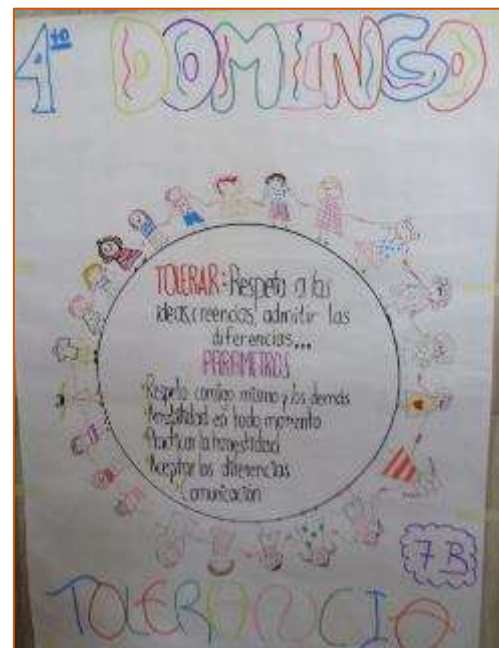 4to DOMINGO
TOLERAR: Respeto a las
ideas, creencias, admitir las
diferencias...
PARAMETROS
Respeto conmigo mismo y los demás
Amabilidad en todo momento
Practicar la honestidad
Aceptar las diferencias
Comunicación
7B
TOLERANCIA